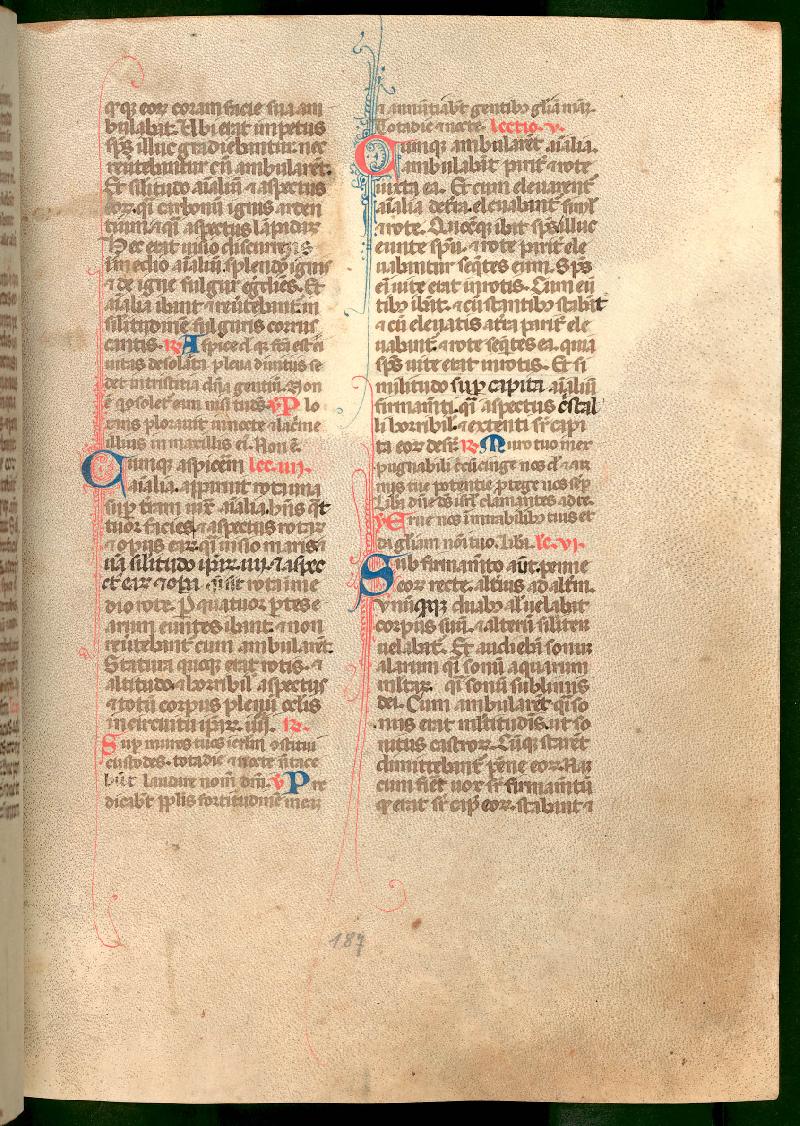 q̃qꝫ eoꝝ coram facie sua am
bulabat. Ubi erat impetus
sp̃s illuc gradiebantur. nec
reuertebantur cũ ambularẽt.
Et silitudo aĩaliũ ⁊ aspectus
eoꝝ. q̃i carbonũ ignis arden
tium. ⁊ q̃i aspectus lãpadaꝝ
Hec erat uisio discurrens
ĩ medio aĩaliũ. splendor ignis
⁊ de igne fulgur egrediẽs. Et
aĩalia ibant ⁊ reuertebant. in
silitudinẽ fulguris corus
cantis. R Aspice dñe q̃ fc̃a est ci
uitas desolata plena diuitiis se
det in tristitia dña gentiũ. Non
ẽ q̃ ꝯsolet͛ eam nisi tu d̃s. V Plo
rans plorauit in nocte ⁊ lac̃me
illius in maxillis ei. Non ẽ.
Cumqꝫ aspicerẽ lec. iiii.
aĩalia. apparuit rota una
sup͛ terram iux̃ aĩalia. hñs q̃t
tuor facies. ⁊ aspectus rotaꝝ
⁊ opus eaꝝ q̃i uisio maris.
una silitudo ip̃aꝝ. iiii. ⁊ aspec
tꝰ eaꝝ ⁊ oꝑa q̃i sit rota ĩ me
dio rote. P quatuor ꝑtes e
arum euntes ibant. ⁊ non
reuertebant͛ cum ambularẽt.
Statura quoqꝫ erat rotis. ⁊
altitudo. ⁊ horribil͛ aspectus
⁊ totũ corpus plenũ oc̃lis
in circuitu ip̃aꝝ. iiii. R
Sup͛ muros tuos ierl̃m ꝯstitui
custodes. tota die ⁊ nocte ñ tace
bũt laudare nom̃ dñi. V Pre
dicabũt pp̃lis fortitudinẽ meã
⁊ annũtiabũt gentibꝰ gl̃iã meã.
Tota die ⁊ nocte. lectio. v.
Cumqꝫ ambularẽt aĩalia.
ambulabãt parit͛ ⁊ rote
iuxta ea. Et cum eleuarent͛
aĩalia de t͛ra. eleuabant͛ simĺ
⁊ rote. Quocũqꝫ ibat sp̃s. illuc
eunte sp̃u. ⁊ rote parit͛ ele
uabantur seq̃tes eum. Sp̃s
eĩ uite erat in rotis. Cum eũ
tibꝰ ibãt. ⁊ cũ stantibꝰ stabãt
⁊ cũ eleuatis a t͛ra parit͛ ele
uabant͛. ⁊ rote seq̃tes ea. quia
sp̃s uite erat in rotis. Et si
militudo sup͛ capita aĩaliũ
firmam̃ti. q̃i aspectus c͛stal
li horribil͛. ⁊ extenti sr̃ capi
ta eoꝝ desr̃. R Muro tuo inex
pugnabili circũcinge nos dñe ⁊ ar
mis tue potentie ꝓtege nos sẽp
Lib͛a dñe d̃s isr̃l clamantes ad te.
V Erue nos ĩ mirabilibꝰ tuis et
da gl̃iam nõi tuo. Lib͛a. lc. vi.
Sub firmam̃to aũt. penne
eoꝝ recte. alt͛ius ad alt͛ũ.
Vnũqͦqꝫ duabꝰ al̃ uelabat
corpus suũ. ⁊ alterũ silit͛ ue
uelabat͛. Et audiebã sonum
alarum q̃i sonũ aquarum
multaꝝ. q̃i sonũ sublimis
dei. Cum ambularẽt q̃i so
nus erat m̃ltitudĩs. ut so
nitus castroꝝ. Cũqꝫ starẽt
dimittebant͛ pẽne eoꝝ. Nã
cum fieret uox sr̃ firmam̃tũ
q̃ erat sr̃ cap̃ eoꝝ. stabant ⁊
187